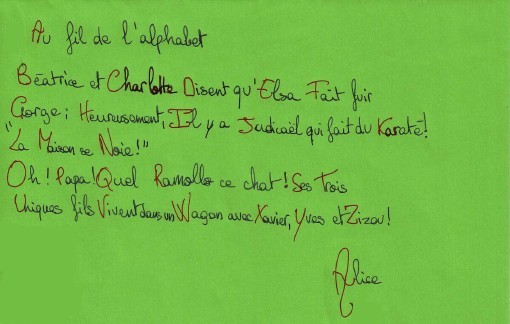 Au fil de l'alphabet
Béatrice et Charlotte Disent qu'Elsa Fait fuir
Gorge; Heureusement, Il y a Judicaël qui fait du Karaté!
"La Maison se Noie!"
Oh! Papa! Quel Ramollo ce chat! Ses Trois
Uniques fils Vivent dans un Wagon avec Xavier, Yves et Zizou!
Alice